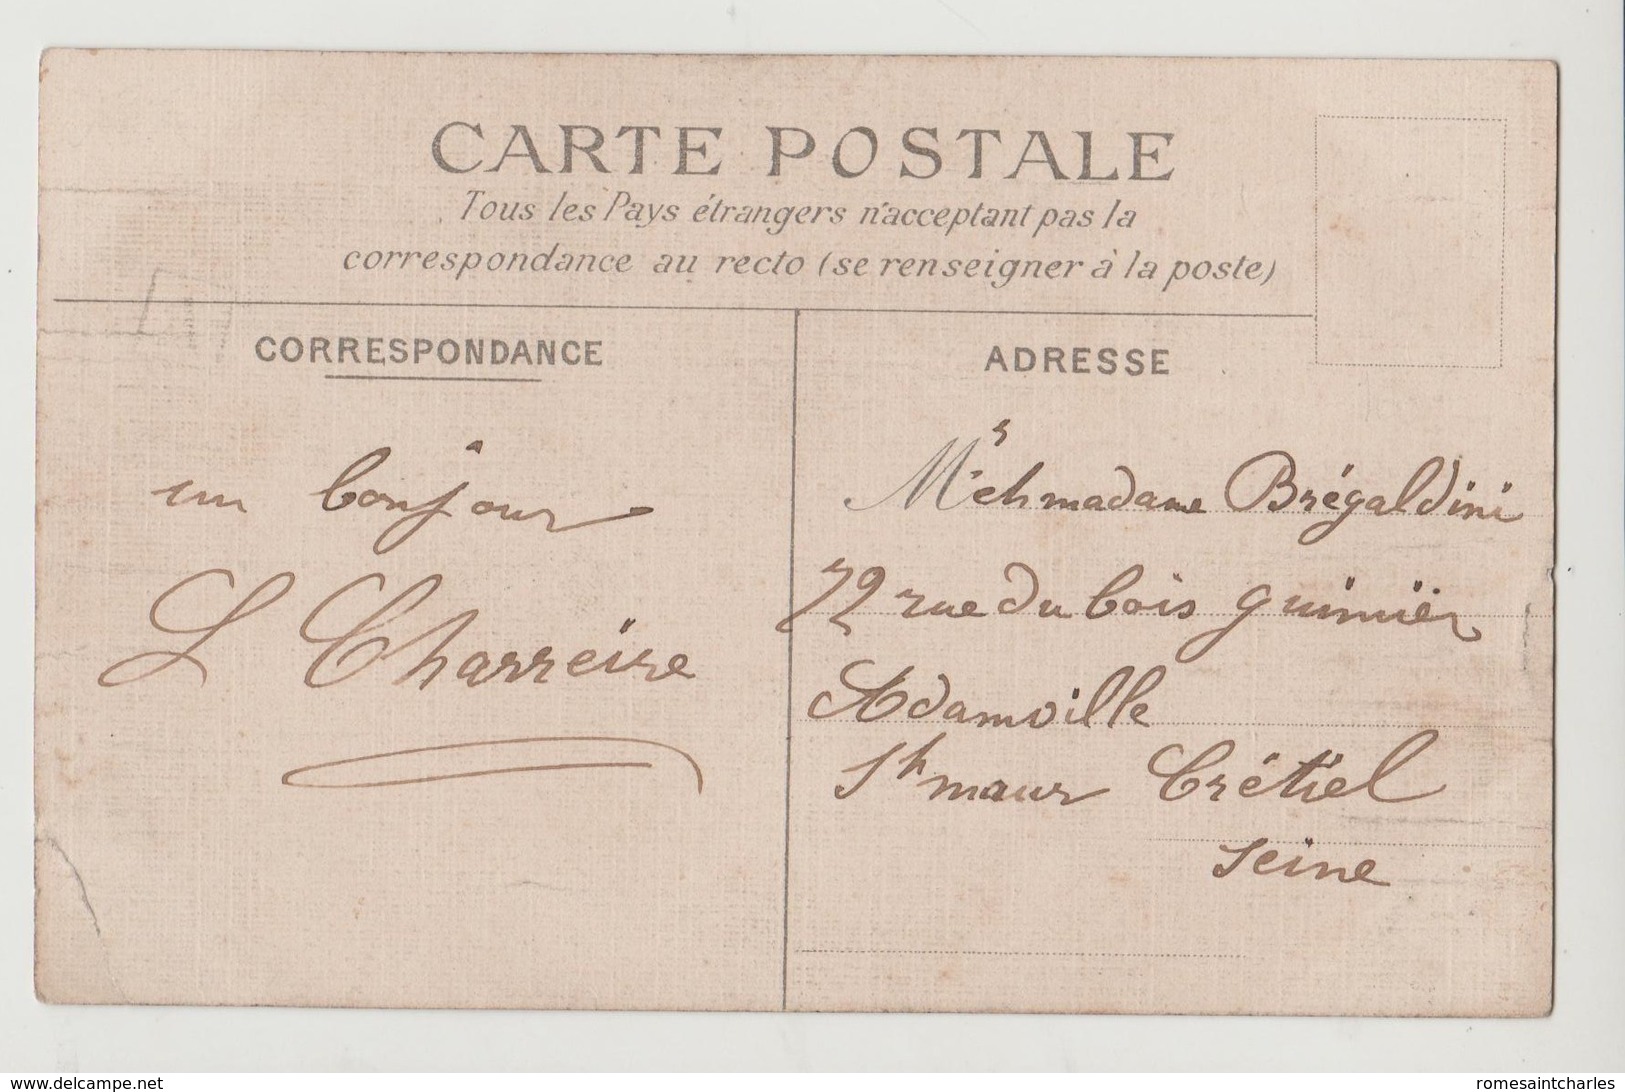 CARTE POSTALE
Tous les Pays étrangers n'acceptant pas la
correspondance au recto (se renseigner à la poste)
CORRESPONDANCE
ADRESSE
un bonjour
L Charreire
Mr eh madame Brégaldini
72 rue du bois guimier
Adamville
Sh maur Crétiel
Seine
www.delcampe.net
romesaintcharles